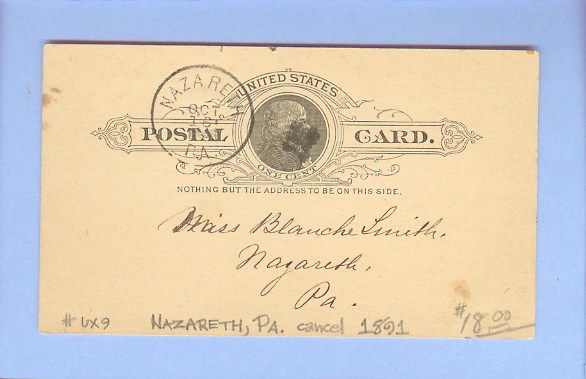 NAZARETH
OCT
PA.
UNITED STATES
POSTAL CARD.
ONE CENT
NOTHING BUT THE ADDRESS TO BE ON THIS SIDE.
Miss Blanche Smith,
Nazareth,
Pa.
# UX9 NAZARETH, PA. cancel 1891 #18.00